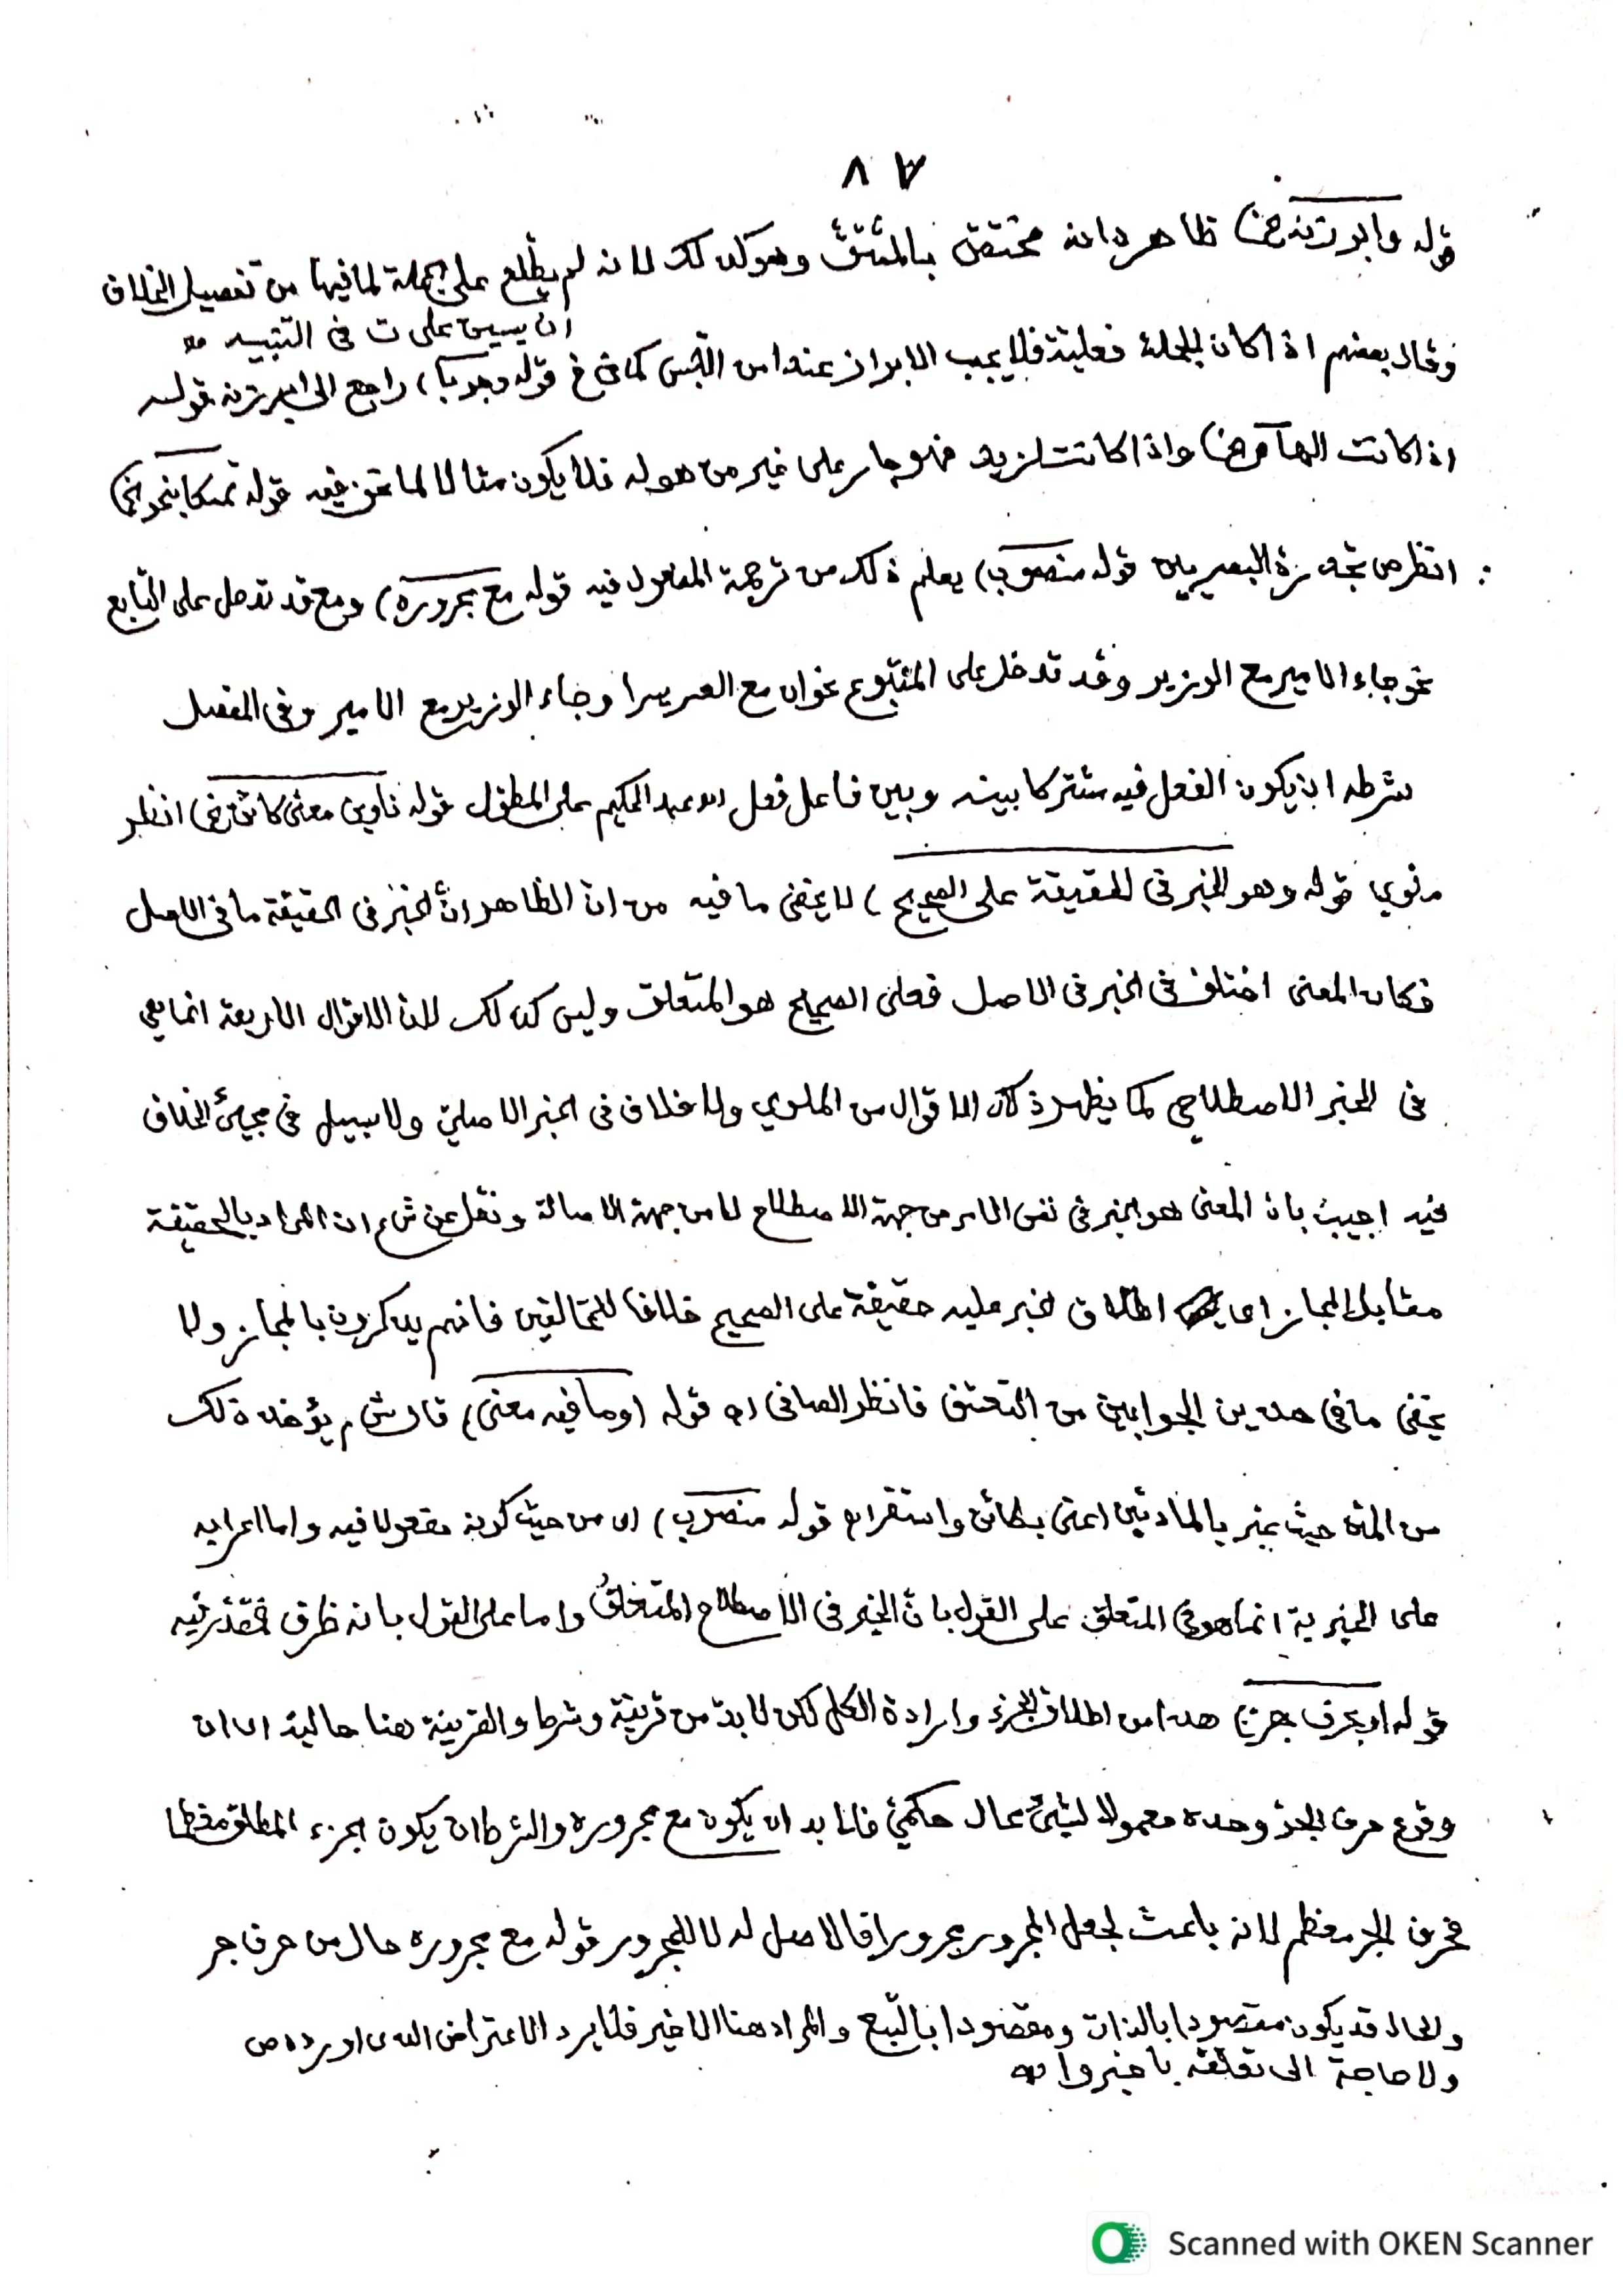 ٨٧
قوله وابرزنه الخ) ظاهره انه مختص بالمشتق وهو كذلك لانه لم يطلع على الجملة لما فيها من تفصيل الخلاف
وقال بعضهم اذا كان الجملة فعلية فلا يجب الابراز عند امن اللبس كما فى قوله وجوبا) راجع الى ابرزنه قوله
ان يسين على ت فى التنبيه
اذا كانت الهآء الخ) واذا كانت لزيد فهو جار على غير من هو له فلا يكون مثالا لما نحن فيه قوله تمسكا بنحو الخ)
انظر من البصريين قوله منصوب) يعلم ذلك من ترجمة المفعول فيه قوله مع مجروره) ومع قد تدخل على التابع
نحو جاء الامير مع الوزير وقد تدخل على المتبوع نحو ان مع العسر يسرا وجاء الوزير مع الامير وفى المفصل
شرطه ان يكون الفعل فيه مشتركا بينه وبين فاعل فعل اه عبد الحكيم على المطول قوله ناوين معنى كائن الخ) انظر
منوي قوله وهو الخبر فى الحقيقة على الصحيح) لا يخفى ما فيه من انّ الظاهر انّ الخبر فى الحقيقة ما فى الاصل
فكان المعنى اختلف فى الخبر فى الاصل فعلى الصحيح هو المتعلق وليس كذلك لان الاقوال الاربعة انما هي
فى الخبر الاصطلاحي كما يظهر ذلك الاقوال من الملوي ولا خلاف فى الخبر الاصليّ ولا سبيل فى مجيئ الخلاف
فيه اجيب بان المعنى هو الخبر فى نفس الامر من جهة الاصطلاح لا من جهة الاصالة ونقل عن ش م ان المراد بالحقيقة
مقابل المجاز اى اطلاق الخبر عليه حقيقة على الصحيح خلافا للمخالفين فانهم يذكرون بالمجاز ولا
يخفى ما فى هذين الجوابين من التعسّف فانظر الصافى اه قوله (وما فيه معنى) قال ش م يؤخذ ذلك
من المتن حيث عبّر بالمادتين اعنى بكائن واستقر اه قوله منصوب) اى من حيث كونه مفعولا فيه واما اعرابه
على الخبرية انما هو فى المتعلق على القول بانّ الخبر فى الاصطلاح المتعلقُ واما على القول بانه ظرف فمقدّر فيه
قوله او بحرف جرّ) هذا من اطلاق الجزء وارادة الكل لكن لا بدّ من قرينة وشرط والقرينة هنا حالية اى ان
وقوع حرف الجرّ وحده معمولا لشئ محال حكميّ فلا بد ان يكون مع مجروره والشرط ان يكون الجزء المطلق معظما
فحرف الجر معظم لانه باعث لجعل المجرور مجرورا فالاصل له لا للمجرور قوله مع مجروره حال من حرف جر
والحال قد يكون مقصودا بالذات ومقصودا بالتّبع والمراد هنا الاخير فلا يرد الاعتراض الذى اورده ص
ولا حاجة الى تعلقه باخبروا اه
Scanned with OKEN Scanner